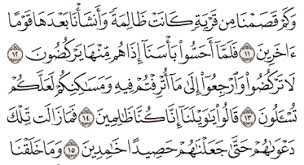 وَكَمْ قَصَمْنَا مِن قَرْيَةٍ كَانَتْ ظَالِمَةً وَأَنشَأْنَا بَعْدَهَا قَوْمًا
ءَاخَرِينَ ۝١١ فَلَمَّآ أَحَسُّوا۟ بَأْسَنَآ إِذَا هُم مِّنْهَا يَرْكُضُونَ ۝١٢
لَا تَرْكُضُوا۟ وَٱرْجِعُوٓا۟ إِلَىٰ مَآ أُتْرِفْتُمْ فِيهِ وَمَسَٰكِنِكُمْ لَعَلَّكُمْ
تُسْـَٔلُونَ ۝١٣ قَالُوا۟ يَٰوَيْلَنَآ إِنَّا كُنَّا ظَٰلِمِينَ ۝١٤ فَمَا زَالَت تِّلْكَ
دَعْوَىٰهُمْ حَتَّىٰ جَعَلْنَٰهُمْ حَصِيدًا خَٰمِدِينَ ۝١٥ وَمَا خَلَقْنَا